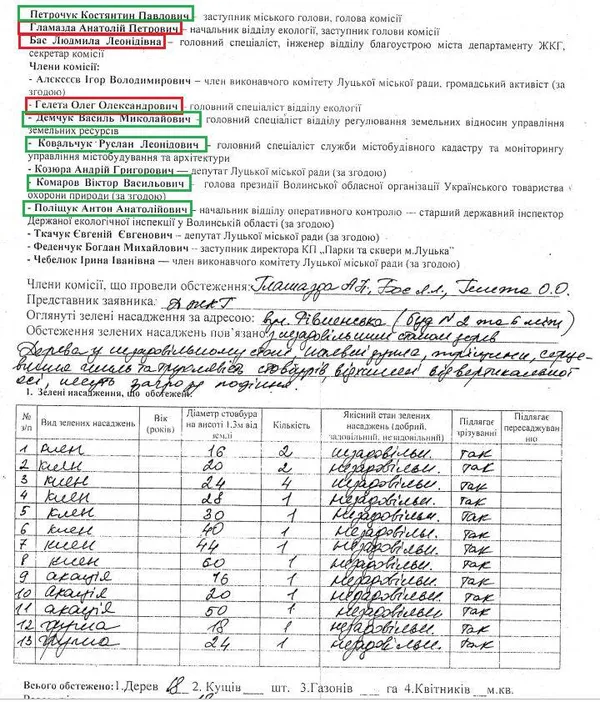 Петрочук Костянтин Павлович – заступник міського голови, голова комісії
Гламазда Анатолій Петрович – начальник відділу екології, заступник голови комісії
Бас Людмила Леонідівна – головний спеціаліст, інженер відділу благоустрою міста департаменту ЖКГ,
секретар комісії
Члени комісії:
- Алєксєєв Ігор Володимирович – член виконавчого комітету Луцької міської ради, громадський активіст (за
згодою)
- Гелета Олег Олександрович – головний спеціаліст відділу екології
- Демчук Василь Миколайович - головний спеціаліст відділу регулювання земельних відносин управління
земельних ресурсів
- Ковальчук Руслан Леонідович - головний спеціаліст служби містобудівного кадастру та моніторингу
управління містобудування та архітектури
- Козюра Андрій Григорович — депутат Луцької міської ради (за згодою)
- Комаров Віктор Васильович - голова президії Волинської обласної організації Українського товариства
охорони природи (за згодою)
- Поліщук Антон Анатолійович – начальник відділу оперативного контролю — старший державний інспектор
Державної екологічної інспекції у Волинській області (за згодою)
- Ткачук Євгеній Євгенович – депутат Луцької міської ради (за згодою)
- Феденчук Богдан Михайлович – заступник директора КП „Парки та сквери м.Луцька”
- Чебелюк Ірина Іванівна — член виконавчого комітету Луцької міської ради (за згодою)
Члени комісії, що провели обстеження: Гламазда А.П., Бас Л.Л., Гелета О.О.
Представник заявника: ДЖКГ
Оглянуті зелені насадження за адресою: вул. Рівненська (буд № 2 та
Обстеження зелених насаджень пов'язано з незадовільним станом дерев
Дерева у незадовільному стані, наявні дупла, тріщини,
гниль та трухлявість стовбурів, відхилені від вертикальної
осі, несуть загрозу падіння.
1. Зелені насадження, що обстежені:
№ з/п Вид зелених насаджень Вік (років) Діаметр стовбура на висоті 1.3м від землі Кількість Якісний стан зелених насаджень (добрий, задовільний, незадовільний) Підлягає зрізуванню Підлягає пересаджуванню
1 клен 16 2 незадовільн. так
2 клен 20 2 незадовільн. так
3 клен 24 4 незадовільн. так
4 клен 28 1 незадовільн. так
5 клен 30 1 незадовільн. так
6 клен 40 1 незадовільн. так
7 клен 44 1 незадовільн. так
8 клен 60 1 незадовільн. так
9 акація 16 1 незадовільн. так
10 акація 20 1 незадовільн. так
11 акація 50 1 незадовільн. так
12 груша 18 1 незадовільн. так
13 груша 24 1 незадовільн. так
Всього обстежено: 1.Дерев 18 2. Кущів___ шт. 3.Газонів ___ га 4.Квітників __м.кв.